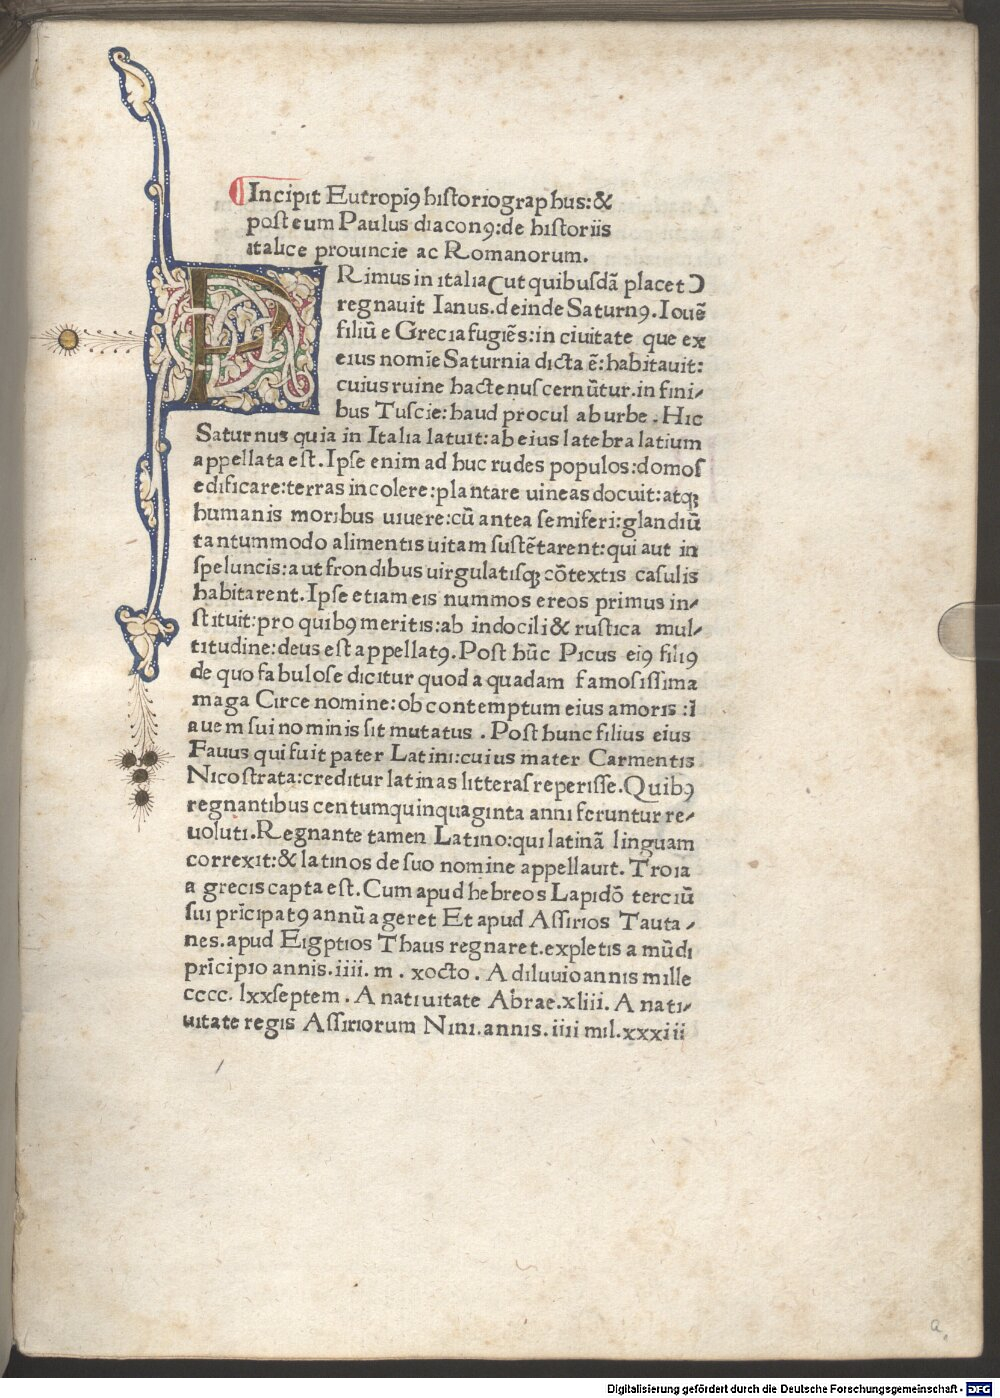 Incipit Eutropiꝰ hiſtoriographus:&
poſt eum Paulus diaconꝰ:de hiſtoriis
italice prouincie ac Romanorum.
PRimus in italia (ut quibuſdā placet)
regnauit Ianus.deinde Saturnꝰ.Iouē
filiū e Grecia fugiēs:in ciuitate que ex
eius nomīe Saturnia dicta ē:habitauit:
cuius ruine hactenuſ cernūtur.in fini-
bus Tuſcie:haud procul ab urbe.Hic
Saturnus quia in Italia latuit:ab eius latebra latium
appellata eſt.Ipſe enim ad huc rudes populos:domoſ
edificare:terras incolere:plantare uineas docuit:atqꝫ
humanis moribus uiuere:cū antea ſemiferi:glandiū
tantummodo alimentis uitam ſuſtētarent:qui aut in
ſpeluncis:aut frondibus uirgulatiſqꝫ cōtextis caſulis
habitarent.Ipſe etiam eis nummos ereos primus in-
ſtituit:pro quibꝰ meritis:ab indocili & ruſtica mul-
titudine:deus eſt appellatꝰ.Poſt hūc Picus eiꝰ filiꝰ
de quo fabuloſe dicitur quod a quadam famoſiſſima
maga Circe nomine:ob contemptum eius amoris:ī
auem ſui nominis ſit mutatus.Poſt hunc filius eius
Fauus qui fuit pater Latini:cuius mater Carmentis
Nicoſtrata:creditur latinas litteraſ reperiſſe.Quibꝰ
regnantibus centum quinquaginta anni feruntur re-
uoluti.Regnante tamen Latino:qui latinā linguam
correxit:& latinos de ſuo nomine appellauit.Troia
a grecis capta eſt.Cum apud hebreos Lapidō terciū
ſui prīcipatꝰ annū ageret Et apud Aſſirios Tauta-
nes.apud Eigptios Thaus regnaret.expletis a mūdi
prīcipio annis.iiii.m.xocto.A diluuio annis mille
cccc.lxxſeptem.A natiuitate Abrae.xliii.A nati-
uitate regis Aſſiriorum Nini.annis.iiii mil.xxxiii
a.
Digitalisierung gefördert durch die Deutsche Forschungsgemeinschaft - DFG